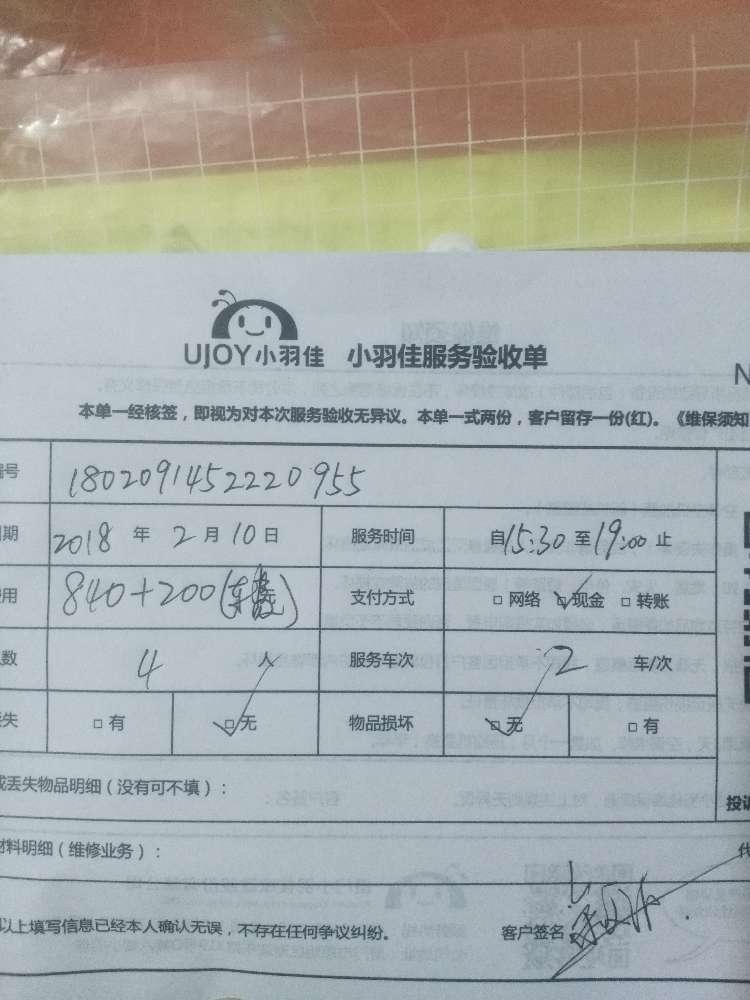 UJOY小羽佳 小羽佳服务验收单
N
本单一经核签，即视为对本次服务验收无异议。本单一式两份，客户留存一份(红)。《维保须知
编号 1802091452220955
日期 2018 年 2 月 10 日 服务时间 自15:30 至 19:00 止
费用 840+200 支付方式 □ 网络 ☑现金 □ 转账
数 4 服务车次 2 车/次
丢失 □ 有 ☑无 物品损坏 ☑无 □ 有
或丢失物品明细（没有可不填）：
投诉
材料明细（维修业务）：
以上填写信息已经本人确认无误，不存在任何争议纠纷。 客户签名